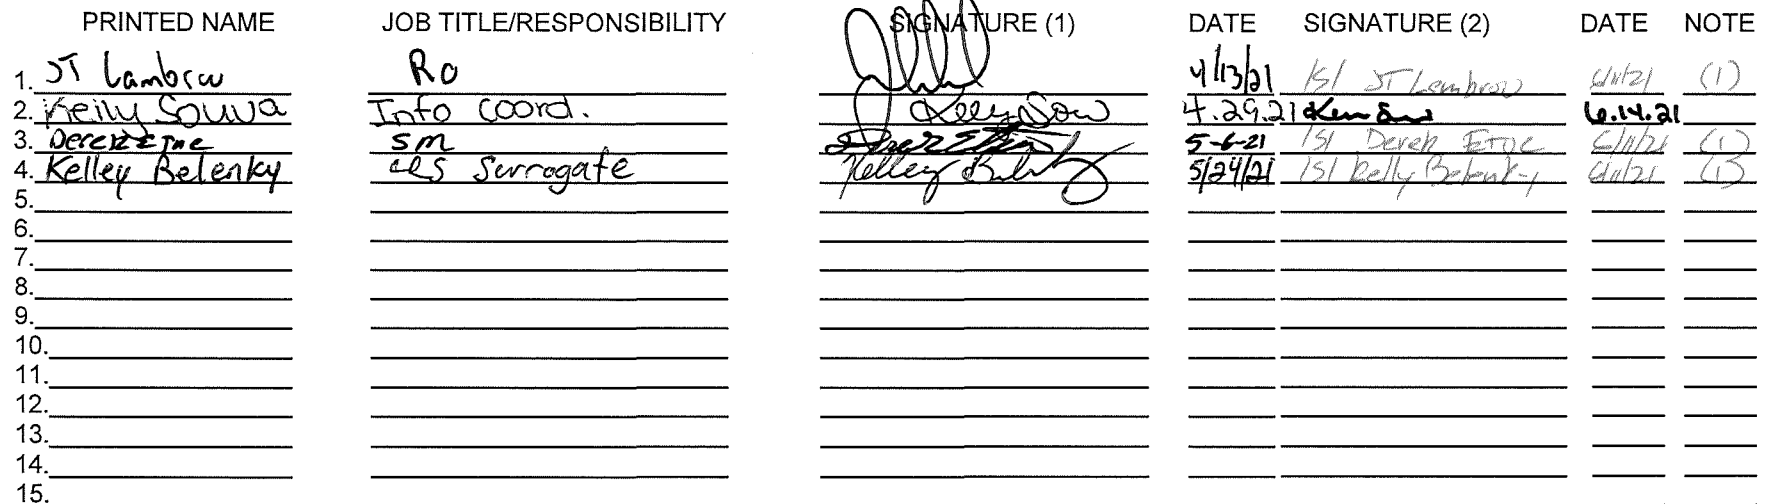 PRINTED NAME JOB TITLE/RESPONSIBILITY SIGNATURE (1) DATE SIGNATURE (2) DATE NOTE
1. JT Lambrow RO 4/13/21 /S/ JT Lambrow 6/11/21 (1)
2. Kelly Souva Info Coord. Kelly Sow 4.29.21 6.14.21
3. Derek Etue SM 5-6-21 /S/ Derek Etue 6/11/21 (1)
4. Kelley Belenky Surrogate Kelley 5/24/21 /S/ Kelly Belenky 6/11/21 (1)
5.
6.
7.
8.
9.
10.
11.
12.
13.
14.
15.